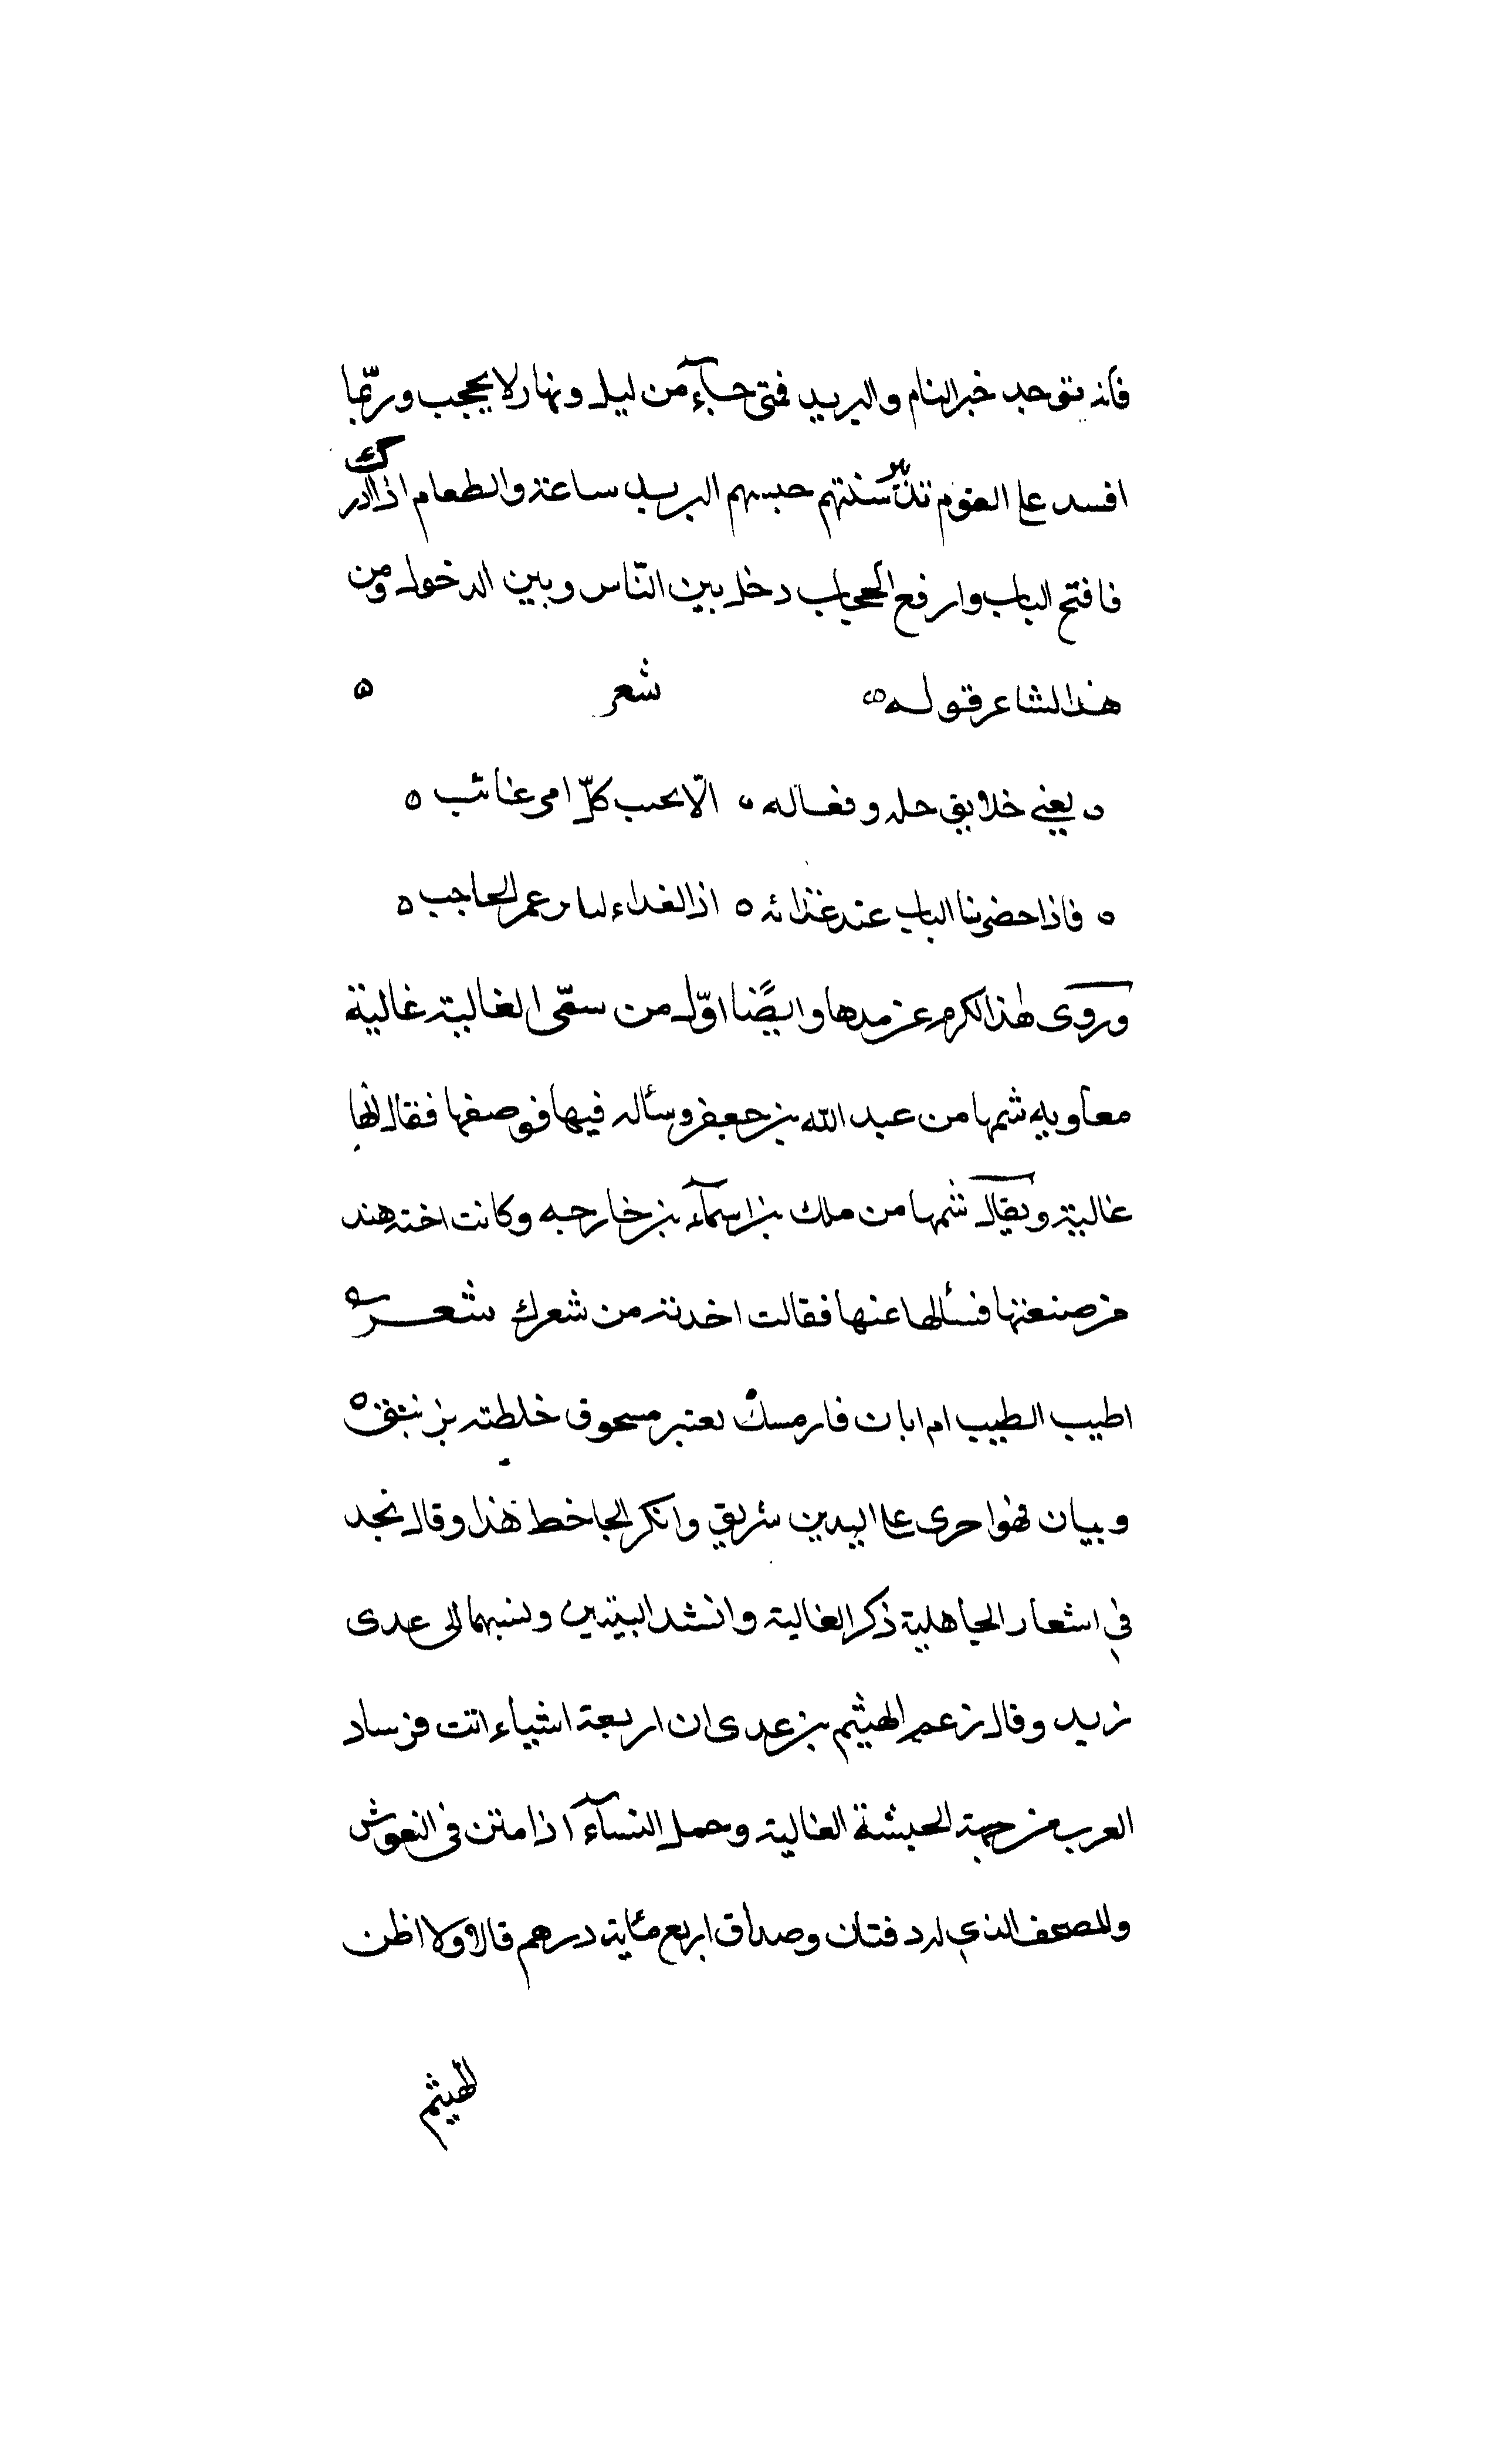 فانه تتوحد خبر النام والبريد فمتى جآء من ليل ونهار لا يحجب وربّما
افسد على القوم تدبير سنتهم حبسهم البريد ساعة والطعام اذا ادرك
فافتح الباب وارفع الحجاب دخل بين النّاس وبين الدخول ومن
هذا الشاعر قوله شعر
يغني خلايق حله وفعاله الا بحب كلّ امر غائب
فاذا حضرنا الباب عند غذائه اذا الغداء لنا برعم الحاجب
وروى هذا الكرم عز مدها وايضًا اوّل من سمّى الغالية غالية
معاويه شمها من عبد الله بن جعفر وسأله فيها فوصفها فقال انها
غالية ويقال شمها من ملك بن اسمآء بن خارجه وكانت اخته هند
من صنعتها فسألها عنها فقالت اخدته من شعرك شعر
اطيب الطيب ام ابان فار مسك بعنبر مسحوق خلطته بزنبق
وبيان فهوا حرى على اليدين شريق وانكر الجاخط هذا وقال نجد
في اشعار الجاهلية ذكر الغالية وانشد البيتين ونسبهما الى عدى
زيد وقال زعم الهيثم بن عدى ان اربعة اشياء اتت من ساد
العرب من جهة الحبشة الغالية وحمل النسآء اذا متن في النعوش
والمصحف الذي له دفتان وصداق اربع مئاية درهم قال ولا اظن
الهيثم